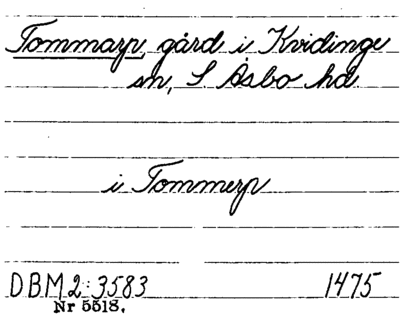 Tommarp, gård i Kvidinge
sn, S. Åsbo hd.
i Tommerp
DBM 2:3583 1475
Nr 5518.